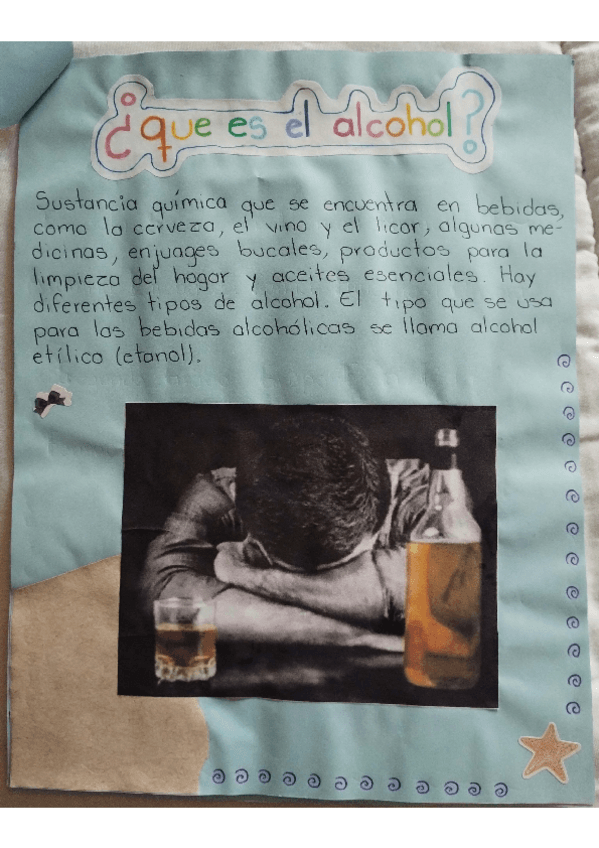 ¿que es el alcohol?
Sustancia química que se encuentra en bebidas,
como la cerveza, el vino y el licor, algunas me-
dicinas, enjuages bucales, productos para la
limpieza del hogar y aceites esenciales. Hay
diferentes tipos de alcohol. El tipo que se usa
para las bebidas alcohólicas se llama alcohol
etílico (etanol).